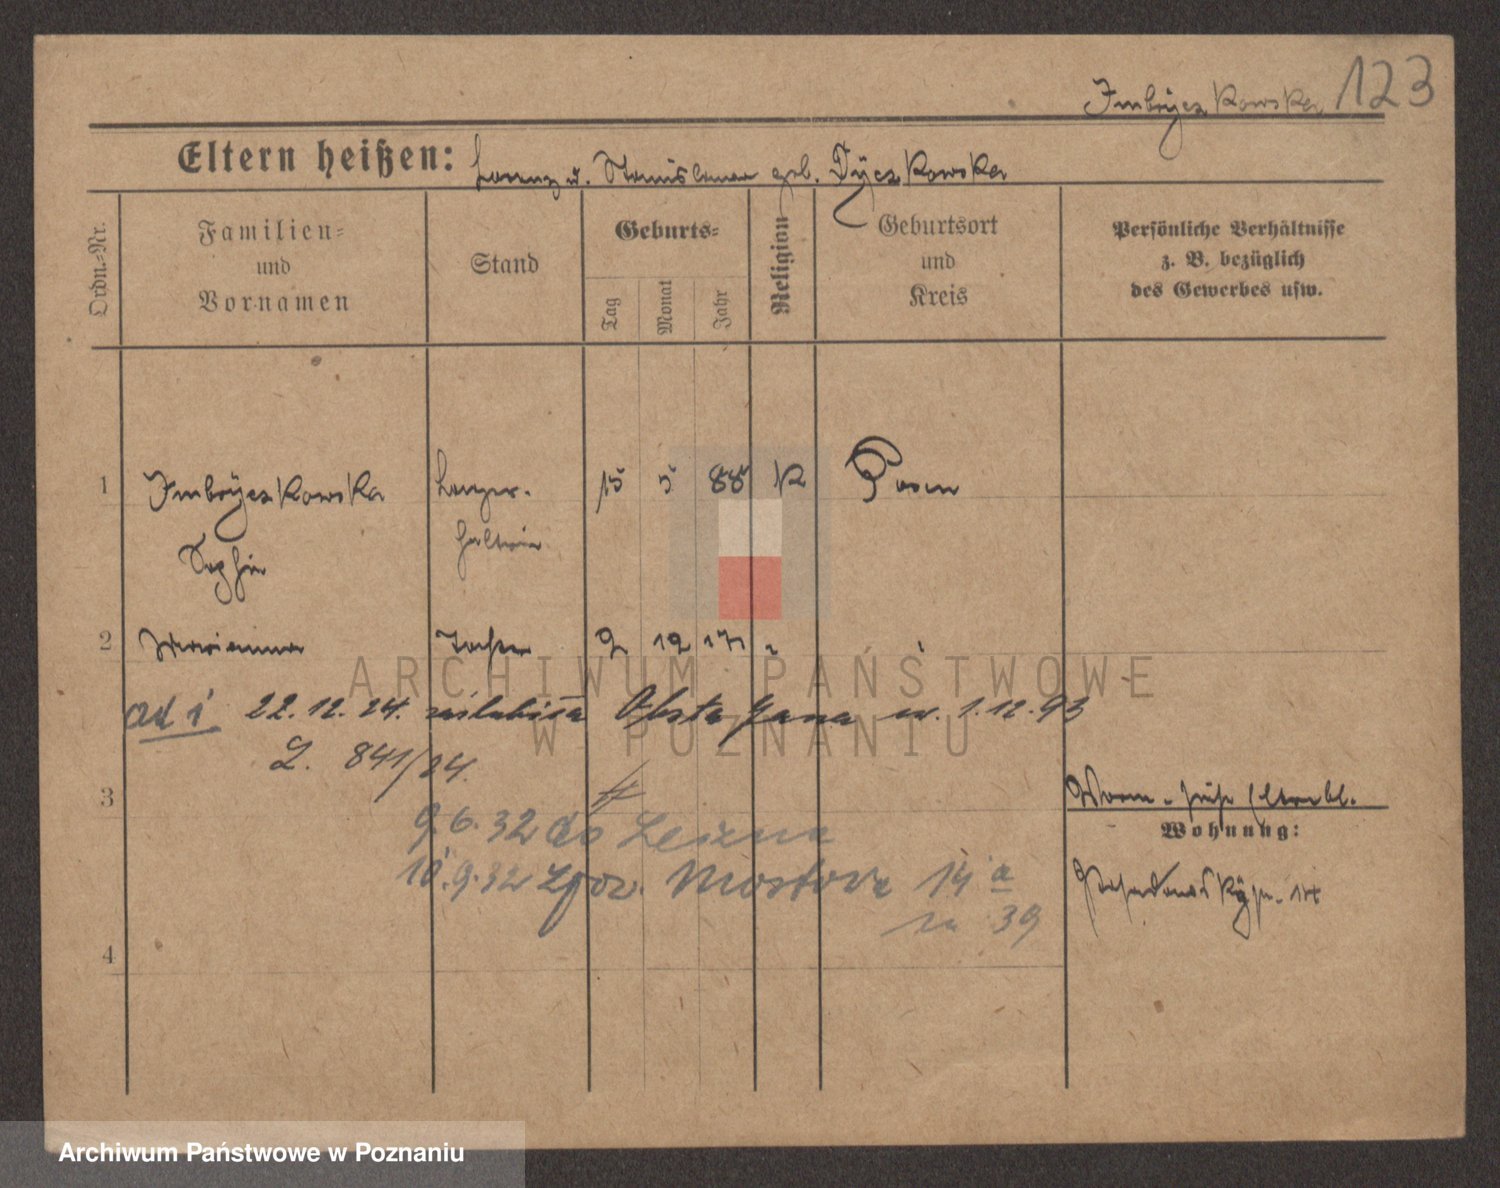 Imbryczkowska 123
Eltern heißen: Lorenz u. Stanislawa geb. Dyczkowska
Ordn.-Nr.
Familien-
und
Vornamen
Stand
Geburts-
Tag
Monat
Jahr
Religion
Geburtsort
und
Kreis
Persönliche Verhältnisse
z. B. bezüglich
des Gewerbes usw.
1 Imbryczkowska 15 5 88 K Posen
Sophie
2 Marianna Tochter 9 12 17 "
ad 1 22.12.24. zaślubiła Jana u. 1.12.93
L. 841/24.
3
9.6.32 do Leszna
10.9.32 Mostowa 14 a
m 39
4
Wohnung:
14
ARCHIWUM PAŃSTWOWE
W POZNANIU
Archiwum Państwowe w Poznaniu